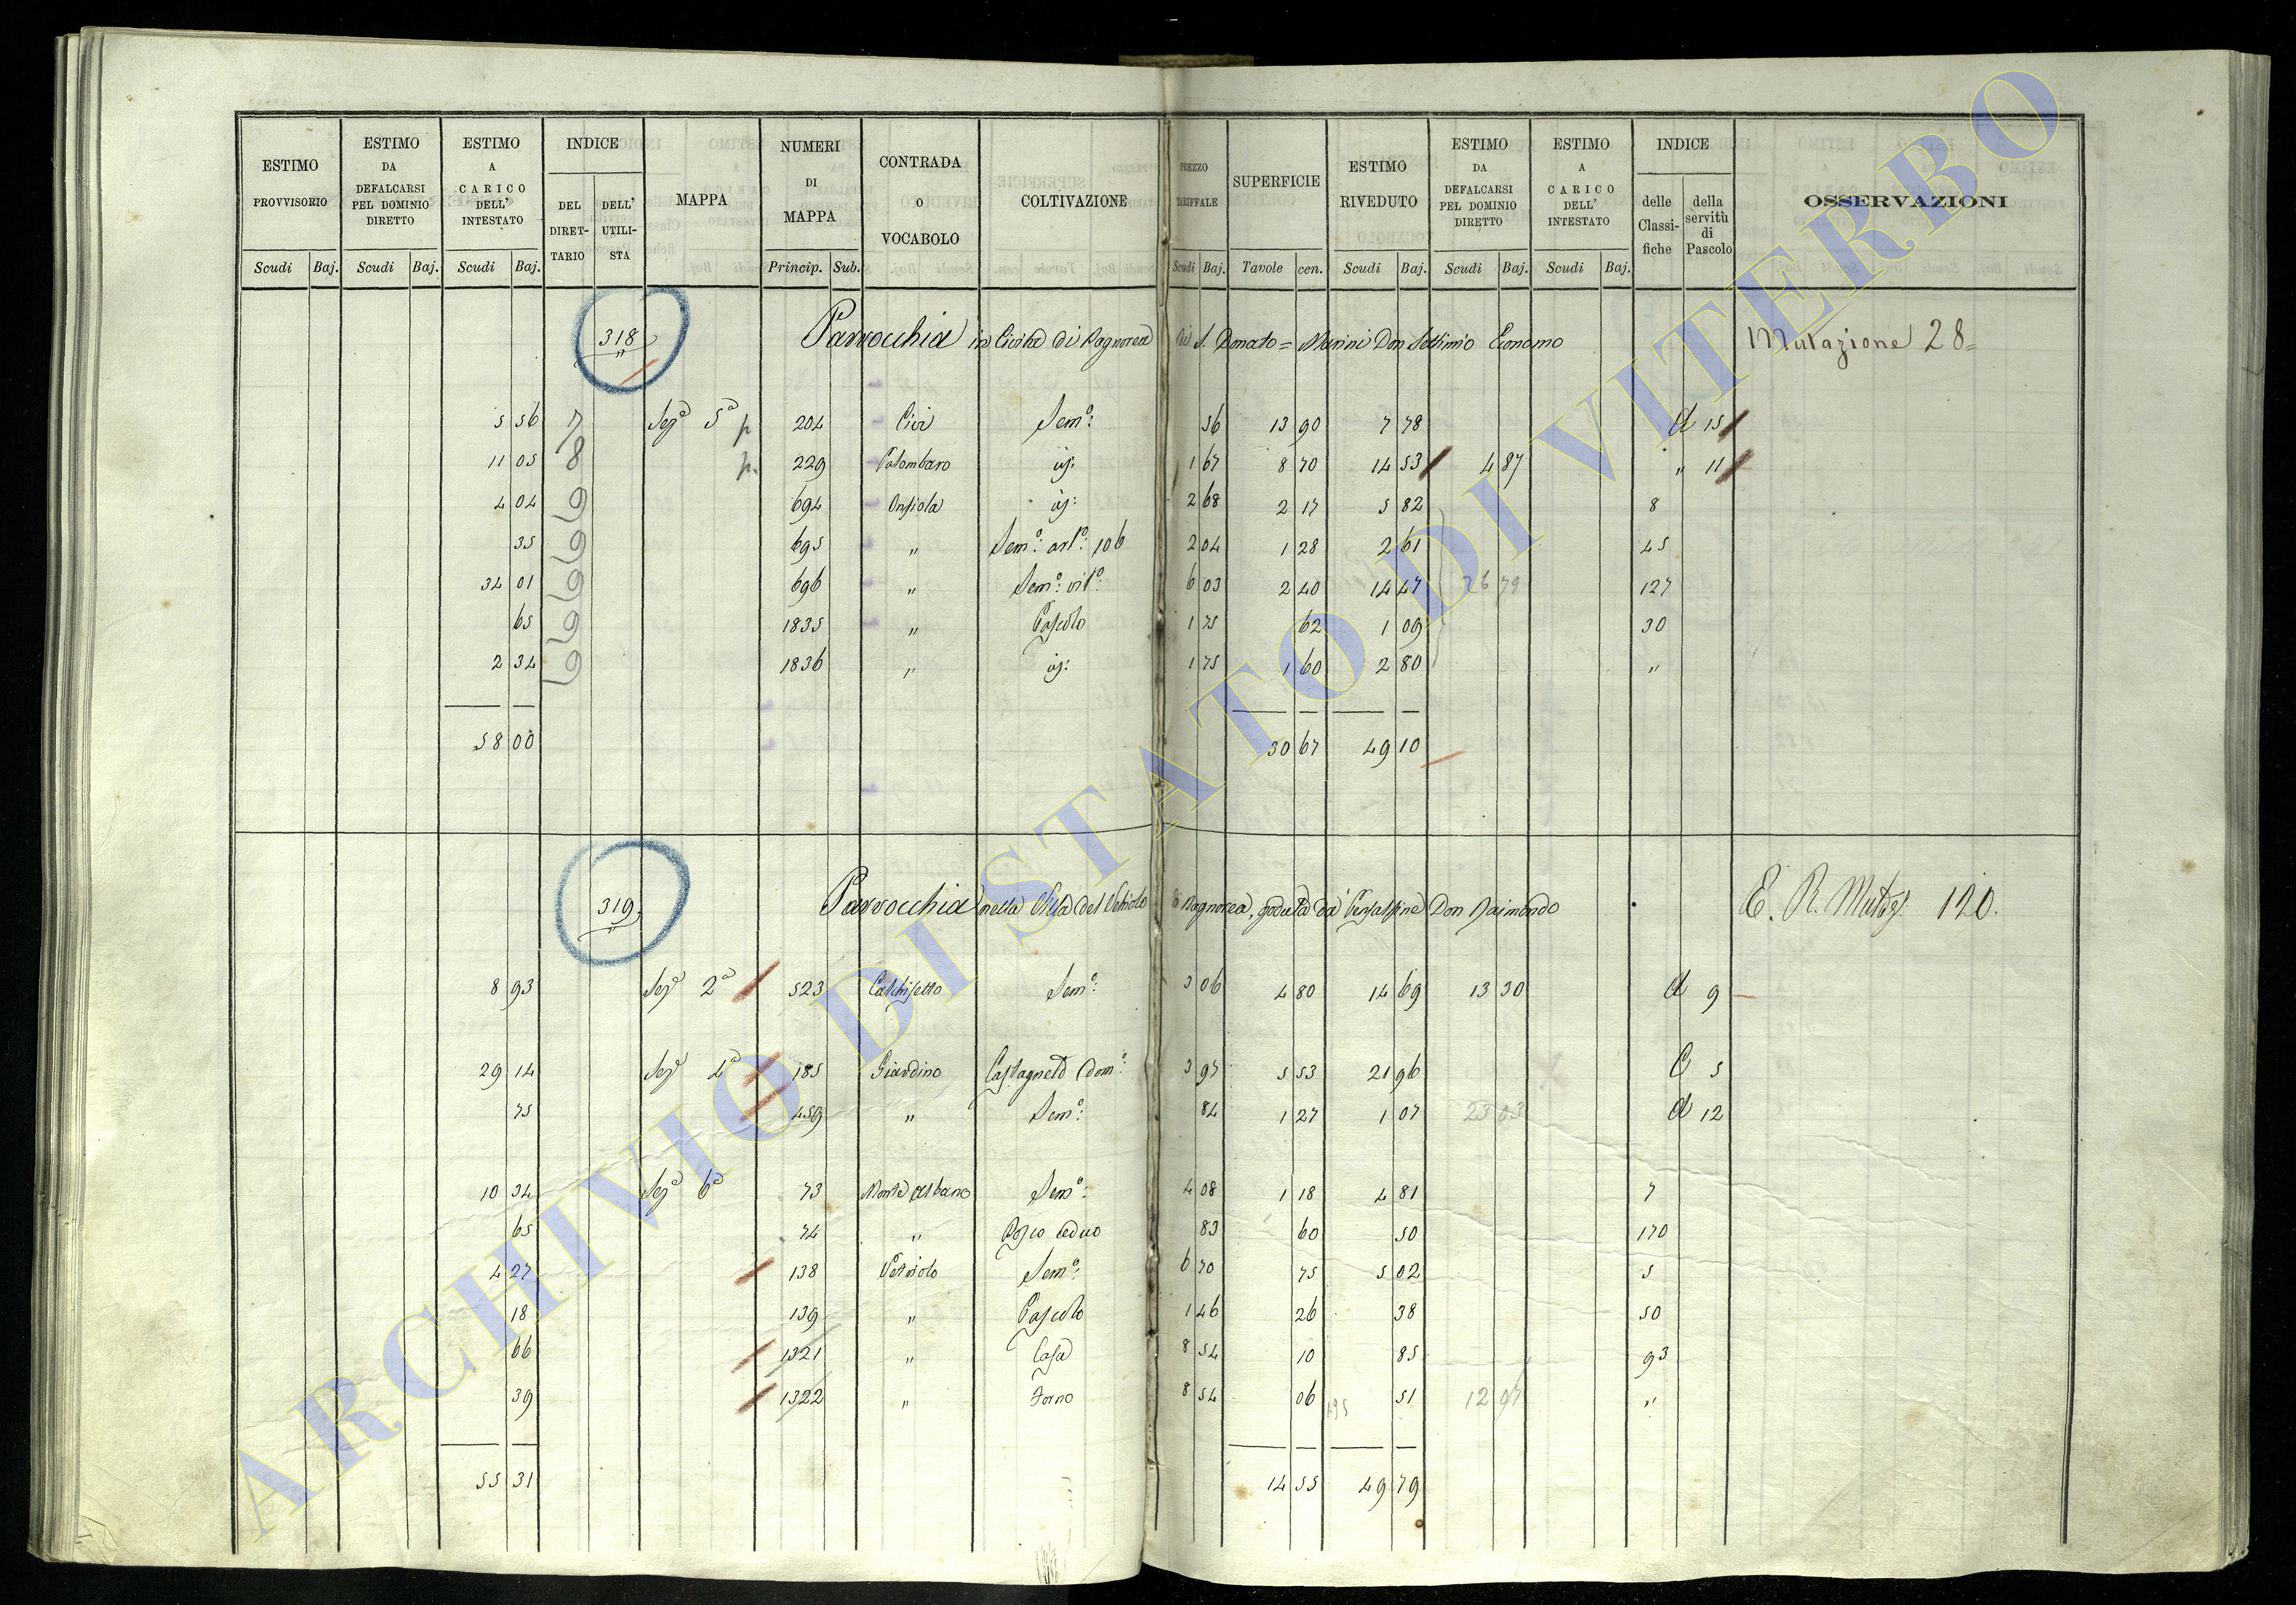 ESTIMO PROVVISORIO | ESTIMO DA DEFALCARSI PEL DOMINIO DIRETTO | ESTIMO A CARICO DELL' INTESTATO | INDICE | MAPPA | NUMERI DI MAPPA | CONTRADA O VOCABOLO | COLTIVAZIONE | PREZZO TARIFFALE | SUPERFICIE | ESTIMO RIVEDUTO | ESTIMO DA DEFALCARSI PEL DOMINIO DIRETTO | ESTIMO A CARICO DELL' INTESTATO | INDICE | OSSERVAZIONI
DEL DIRET-TARIO | DELL' UTILI-STA | delle Classi-fiche | della servitù di Pascolo
Scudi Baj. Scudi Baj. Scudi Baj. Princip. Sub. Scudi Baj. Tavole cen. Scudi Baj. Scudi Baj. Scudi Baj.
318 Parrocchia in Civita di Bagnorea di S. Donato = Marini Don Settimio Economo Mutazione 28=
5 56 7 Sez.e 5a p 204 Sem.o: 56 13 90 7 78 d 15
11 05 8 p. 229 Palombaro id: 1 67 8 70 14 53 4 87 " 11
4 04 9 694 id: 2 68 2 17 5 82 8
35 9 695 " 2 04 1 28 2 61 45
34 01 9 696 " Sem.o: vit.o: 6 03 2 40 14 47 26 79 127
65 9 1835 " Pascolo 1 75 62 1 09 30
2 34 9 1836 " id: 1 75 1 60 2 80 "
58 00 30 67 49 10
319 Parrocchia nella Villa del Vetriolo di Bagnorea, goduta da Don Raimondo E. R. Mutaz. 120.
8 93 Sez.e 2a 523 Sem.o: 3 06 4 80 14 69 13 30 d 9
29 14 Sez.e 4a 185 Giardino Castagneto dom.o: 3 97 5 53 21 96 C 5
75 459 " Sem.o: 84 1 27 1 07 23 03 d 12
10 34 Sez.e 6a 73 Monte Albano Sem.o: 4 08 1 18 4 81 7
65 74 " Bosco ceduo 83 60 50 170
4 27 138 Vetriolo Sem.o: 6 70 75 5 02 5
18 139 " Pascolo 1 46 26 38 50
66 1321 " Casa 8 54 10 85 93
39 1322 " Forno 8 54 06 51 "
55 31 14 55 49 79
ARCHIVIO DI STATO DI VITERBO